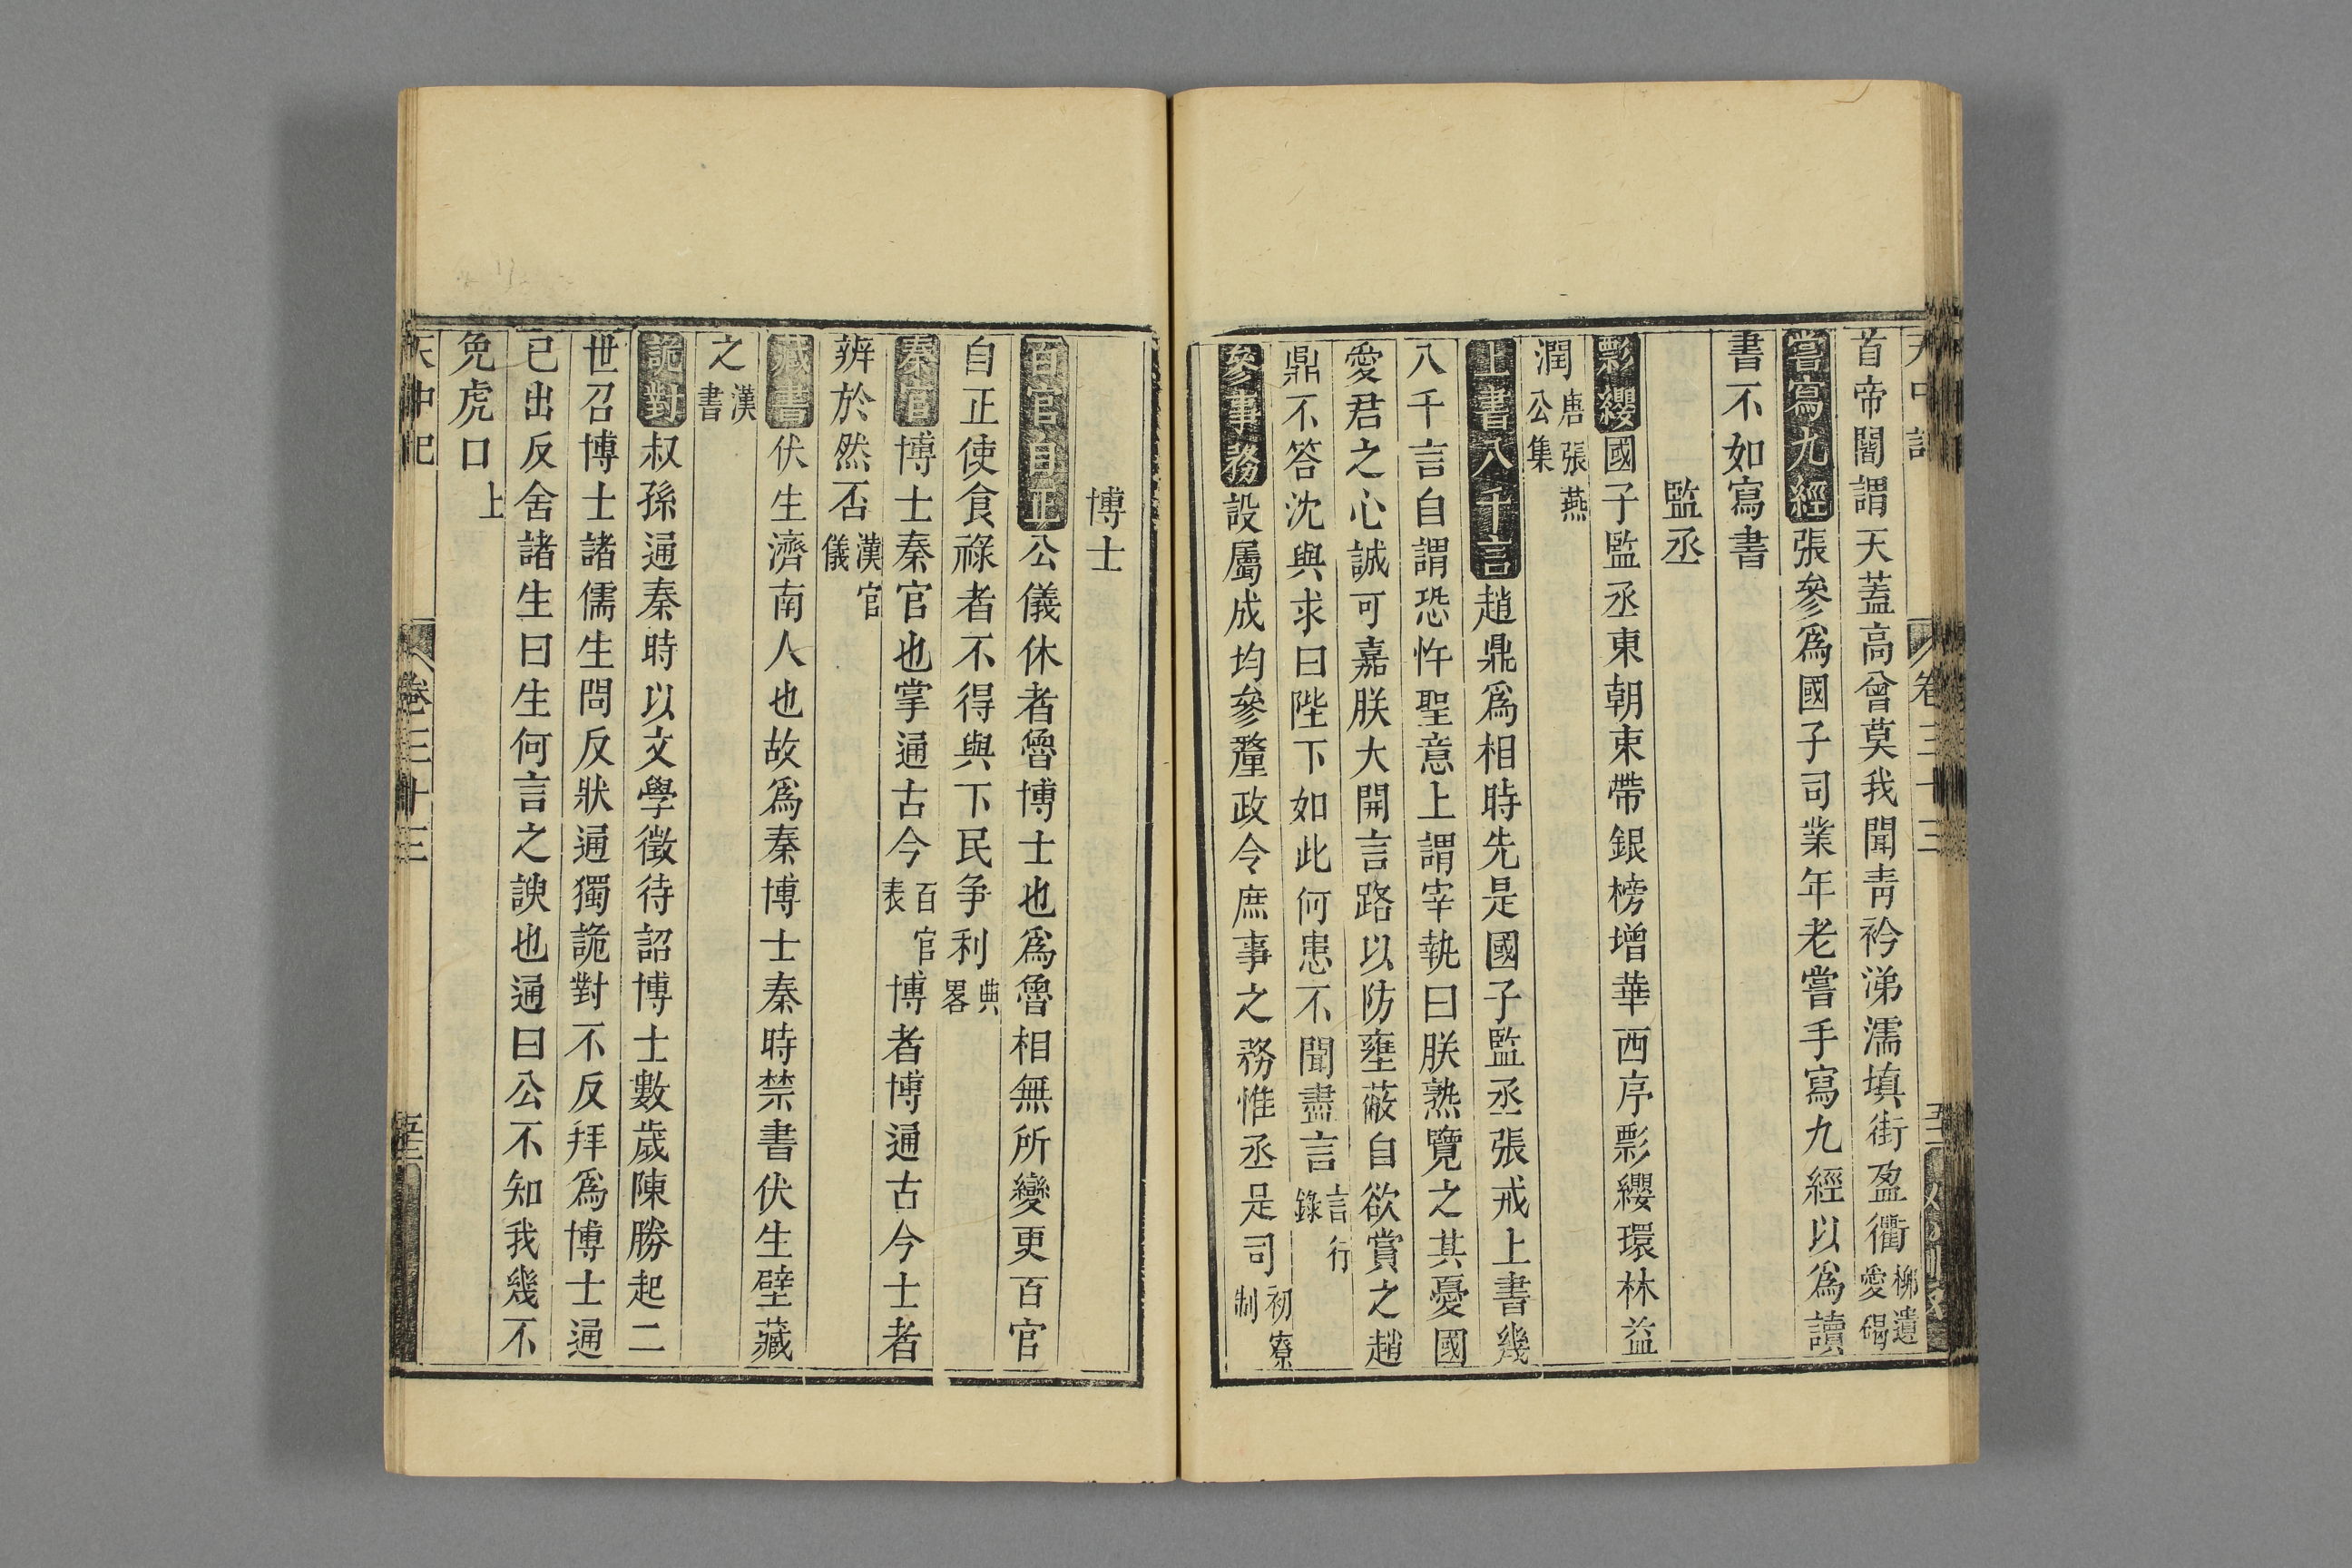 首帝閽謂天蓋高曾莫我聞靑衿涕濡填街盈衢柳遺愛碣
嘗寫九經張參爲國子司業年老嘗手寫九經以爲讀
書不如寫書
監丞
彯纓國子監丞東朝束帶銀榜增華西序彯纓環林益
潤唐張燕公集
上書八千言趙鼎爲相時先是國子監丞張戒上書幾
八千言自謂恐忤聖意上謂宰執曰朕熟覽之其憂國
愛君之心誠可嘉朕大開言路以防壅蔽自欲賞之趙
鼎不答沈與求曰陛下如此何患不聞盡言言行錄
參事務設屬成均參釐政令庶事之務惟丞是司初寮制
博士
百官自正公儀休者魯博士也爲魯相無所變更百官
自正使食祿者不得與下民争利典畧
秦官博士秦官也掌通古今百官表博者博通古今士者
辨於然否漢官儀
藏書伏生濟南人也故爲秦博士秦時禁書伏生壁藏
之漢書
詭對叔孫通秦時以文學徵待詔博士數歲陳勝起二
世召博士諸儒生問反狀通獨詭對不反拜爲博士通
已出反舍諸生曰生何言之諛也通曰公不知我幾不
免虎口上
天中記 卷三十三